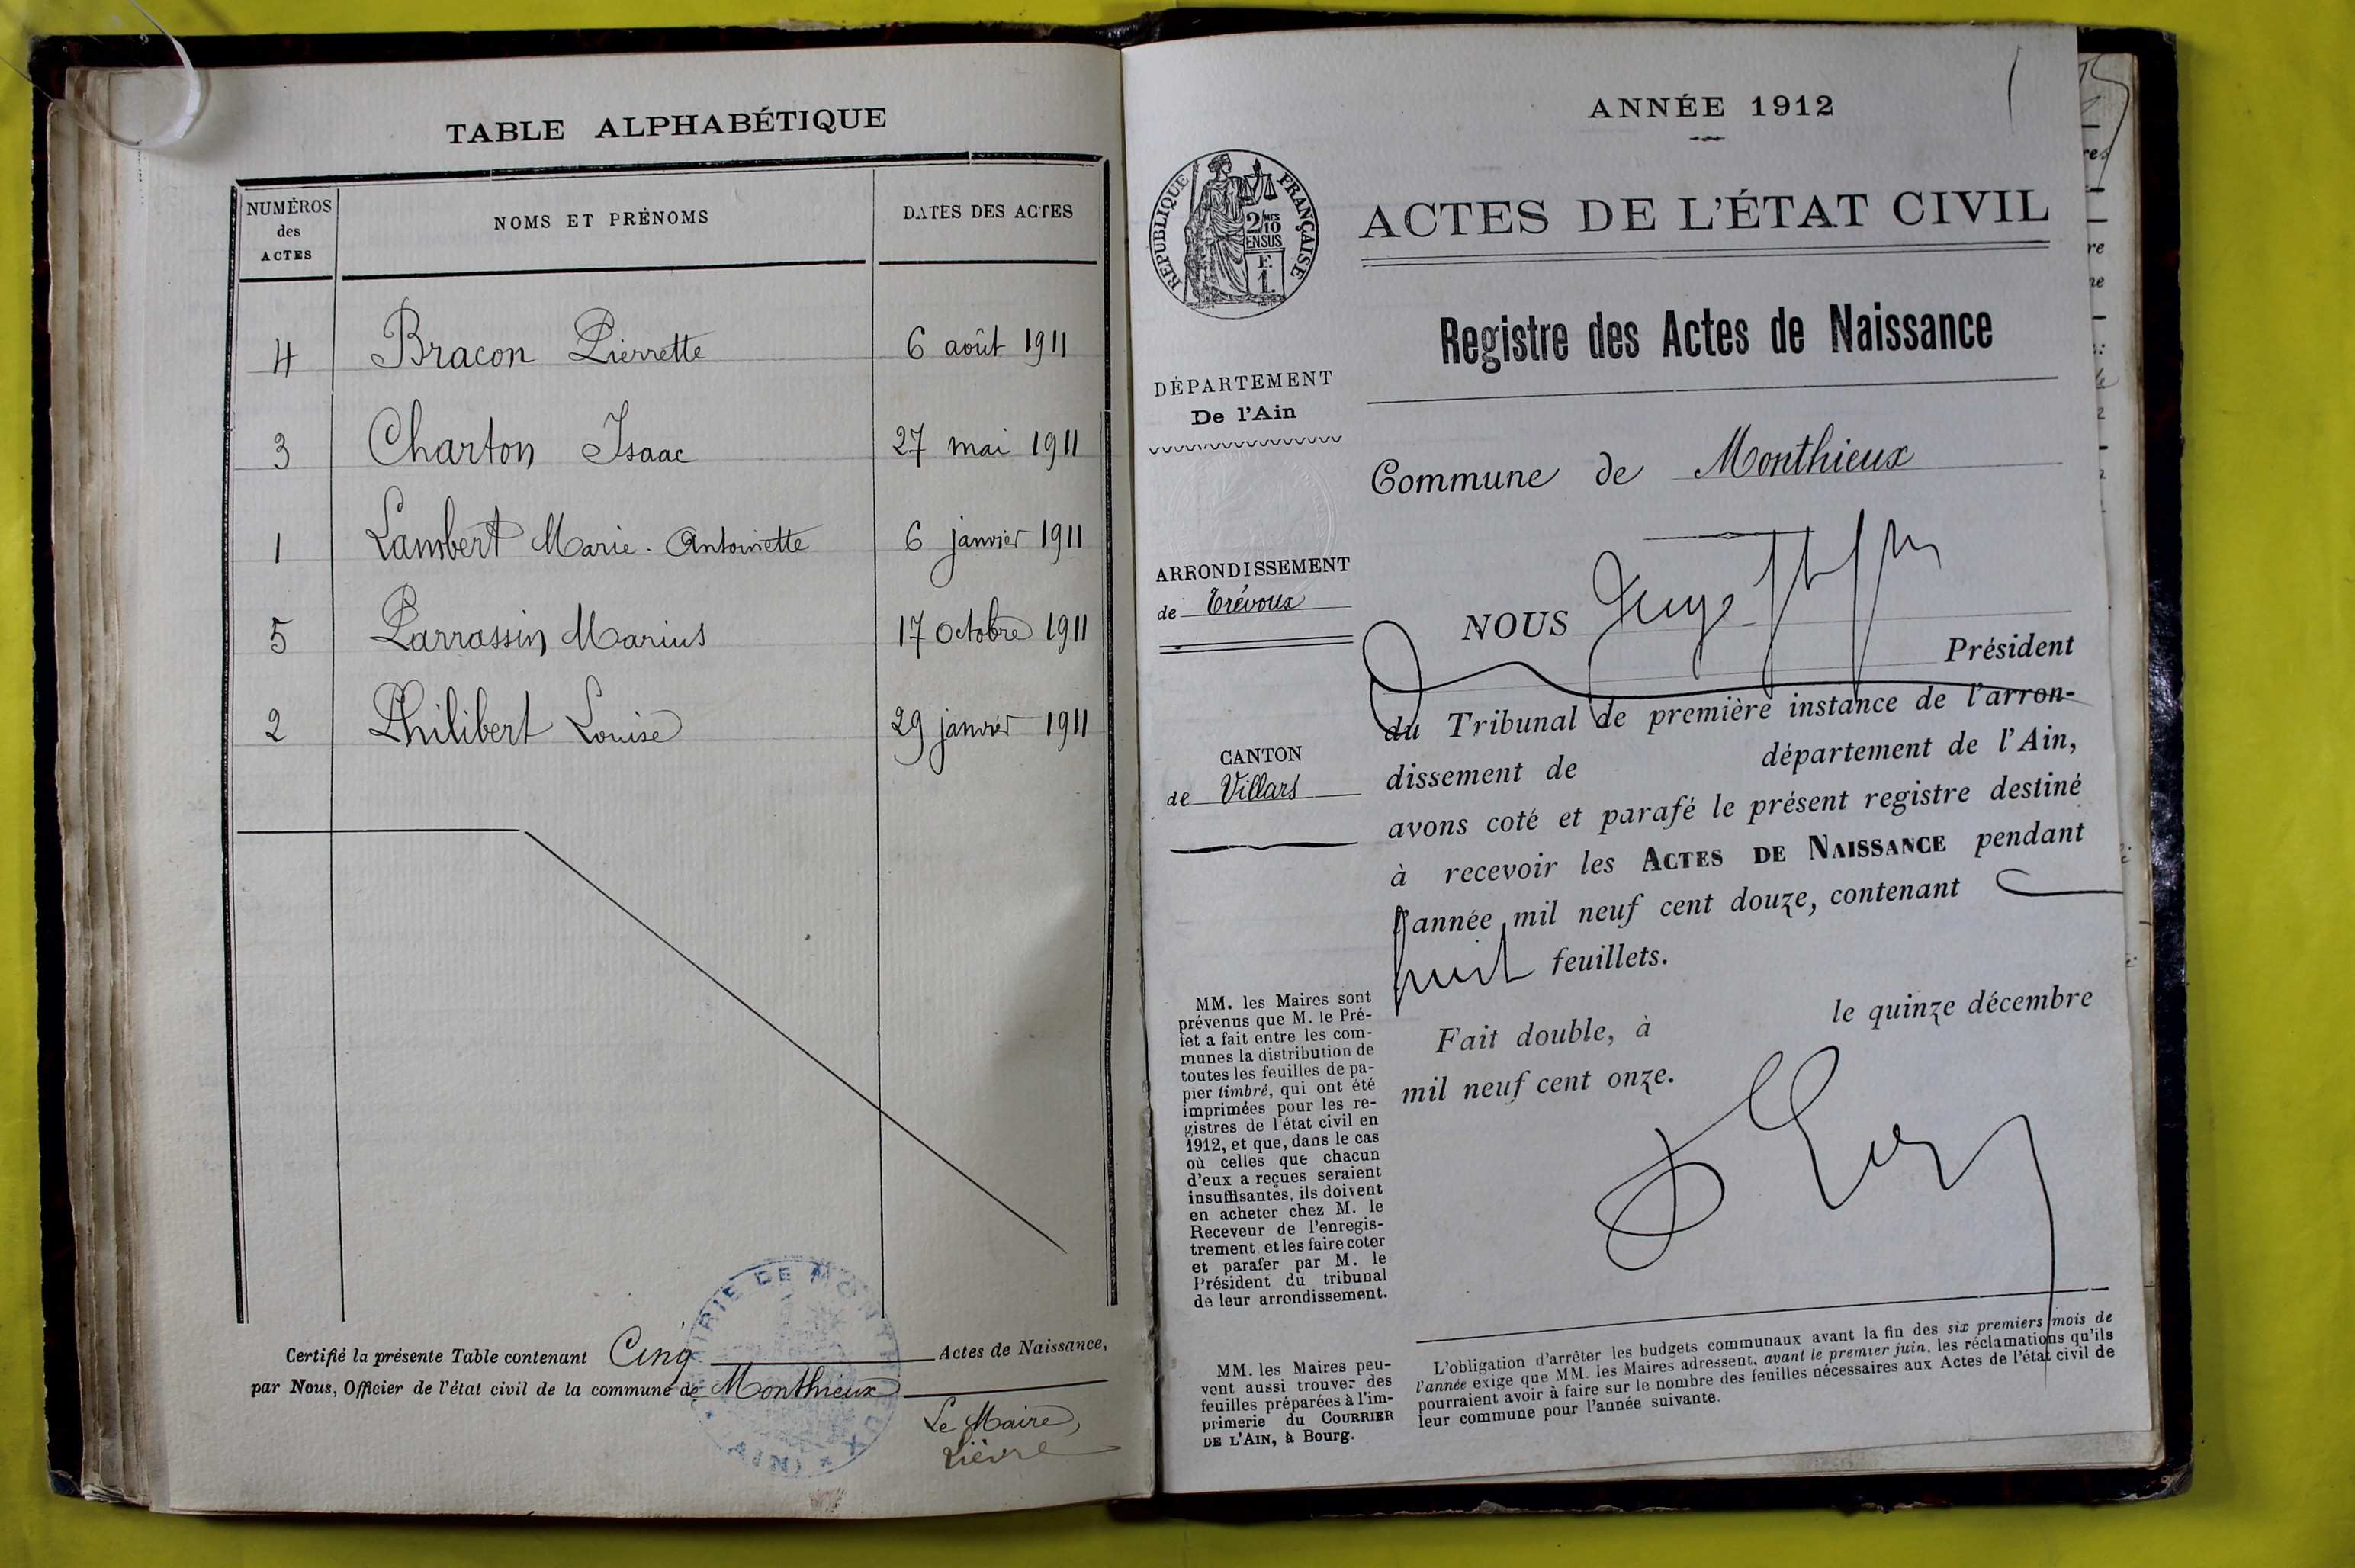 TABLE ALPHABÉTIQUE
NUMÉROS des ACTES NOMS ET PRÉNOMS DATES DES ACTES
4 Bracon Pierrette 6 août 1911
3 Charton Isaac 27 mai 1911
1 Lambert Marie-Antoinette 6 janvier 1911
5 Parrassin Marius 17 octobre 1911
2 Philibert Louise 29 janvier 1911
Certifié la présente Table contenant Cinq Actes de Naissance,
par Nous, Officier de l'état civil de la commune de Monthieux
Le Maire,
Lièvre
MAIRIE DE MONTHIEUX (AIN)
ANNÉE 1912
RÉPUBLIQUE FRANÇAISE
2/10 MES
EN SUS
F.
1.
ACTES DE L'ÉTAT CIVIL
Registre des Actes de Naissance
DÉPARTEMENT
De l'Ain
Commune de Monthieux
ARRONDISSEMENT
de Trévoux
CANTON
de Villars
NOUS
Président
du Tribunal de première instance de l'arron-
dissement de département de l'Ain,
avons coté et parafé le présent registre destiné
à recevoir les ACTES DE NAISSANCE pendant
l'année mil neuf cent douze, contenant
huit feuillets.
Fait double, à le quinze décembre
mil neuf cent onze.
MM. les Maires sont
prévenus que M. le Pré-
fet a fait entre les com-
munes la distribution de
toutes les feuilles de pa-
pier timbré, qui ont été
imprimées pour les re-
gistres de l'état civil en
1912, et que, dans le cas
où celles que chacun
d'eux a reçues seraient
insuffisantes, ils doivent
en acheter chez M. le
Receveur de l'enregis-
trement et les faire coter
et parafer par M. le
Président du tribunal
de leur arrondissement.
MM. les Maires peu-
vent aussi trouver des
feuilles préparées à l'im-
primerie du COURRIER
DE L'AIN, à Bourg.
L'obligation d'arrêter les budgets communaux avant la fin des six premiers mois de
l'année exige que MM. les Maires adressent, avant le premier juin, les réclamations qu'ils
pourraient avoir à faire sur le nombre des feuilles nécessaires aux Actes de l'état civil de
leur commune pour l'année suivante.